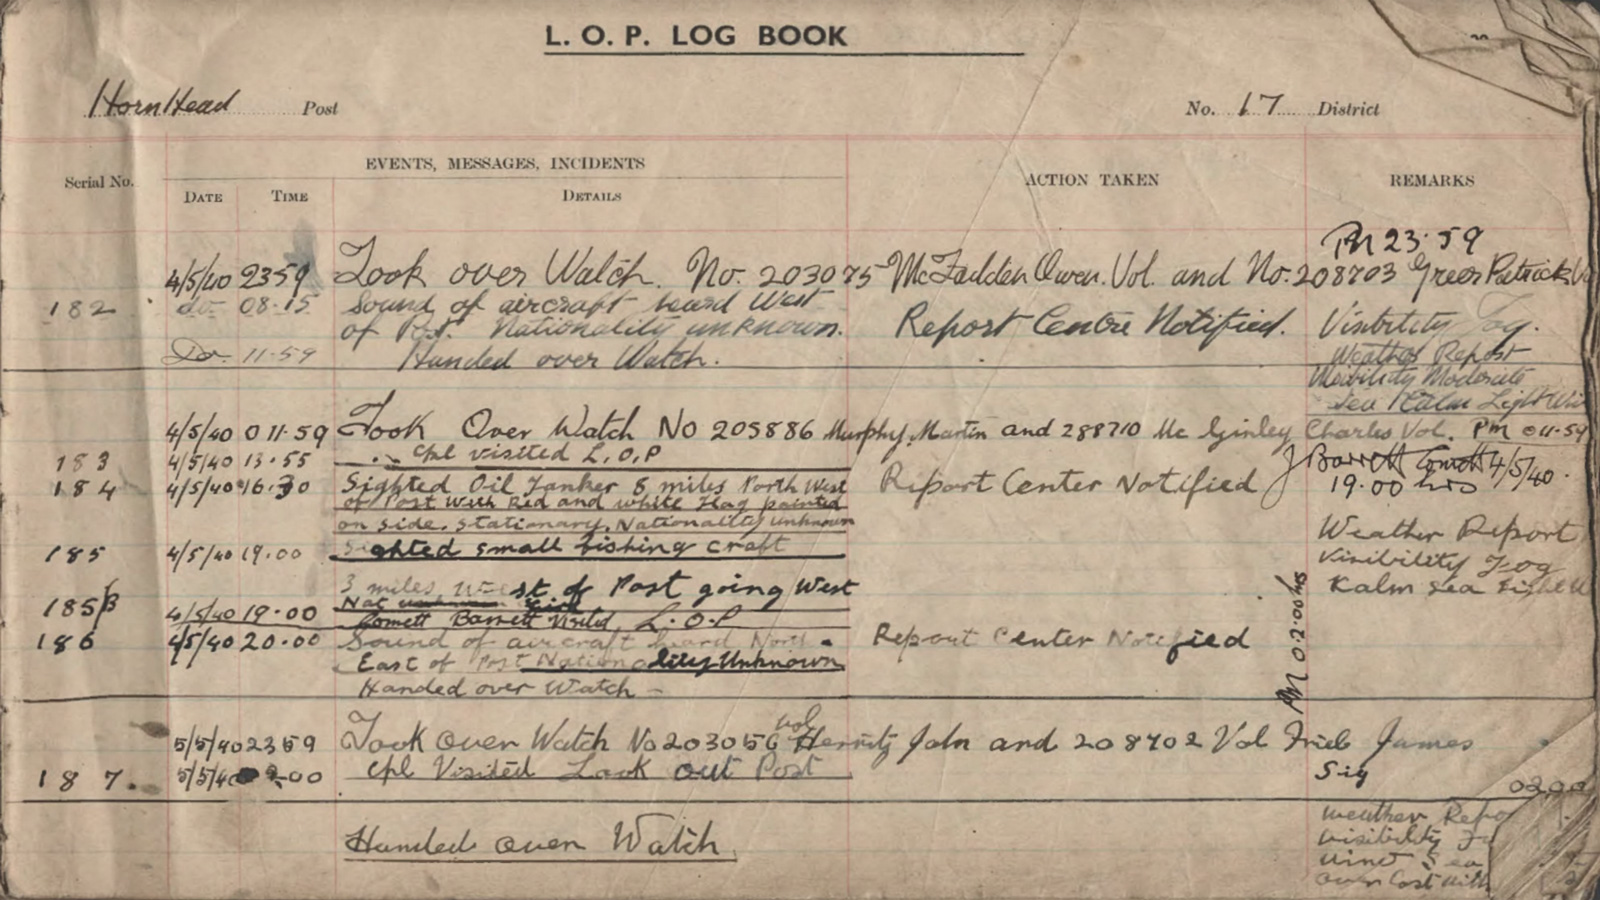 L. O. P. LOG BOOK
Horn Head Post
No. 17 District
Serial No.
EVENTS, MESSAGES, INCIDENTS
ACTION TAKEN
REMARKS
DATE TIME DETAILS
PM 23.59
4/5/40 2359 Took over Watch. No. 203075 McFadden Owen. Vol. and No. 208703 Greer Patrick
182 do 08.15 Sound of aircraft heard West
of Post. Nationality unknown. Report Centre Notified. Visibility Fog.
Do 11.59 Handed over Watch. Weather Report
Visibility Moderate
Sea Calm Light
4/5/40 011.59 Took Over Watch No 205886 Murphy, Martin and 288710 Mc Ginley Charles Vol. PM 011.59
183 4/5/40 13.55 Cpl visited L.O.P
J Barrett 4/5/40.
184 4/5/40 16.30 Sighted Oil Tanker 8 miles North West Report Center Notified 19.00 hrs
of Post With Red and white Flag painted
on side. Stationary. Nationality unknown
Weather Report
185 4/5/40 19.00 Sighted small fishing craft Visibility Fog
3 miles West of Post going West Kalm Sea
Nat
185B 4/5/40 19.00 Comdt Barrett Visited L.O.P
186 4/5/40 20.00 Sound of aircraft heard North Report Center Notified
East of Post Nationality Unknown
Handed over Watch
PM 02.00 hrs
5/5/40 2359 Took over Watch No 203056 Vol John and 208702 Vol Friel James
187. 5/5/40 2.00 Cpl Visited Look out Post Sig
0200
Handed over Watch
Weather
visibility
wind Sea
over Cast